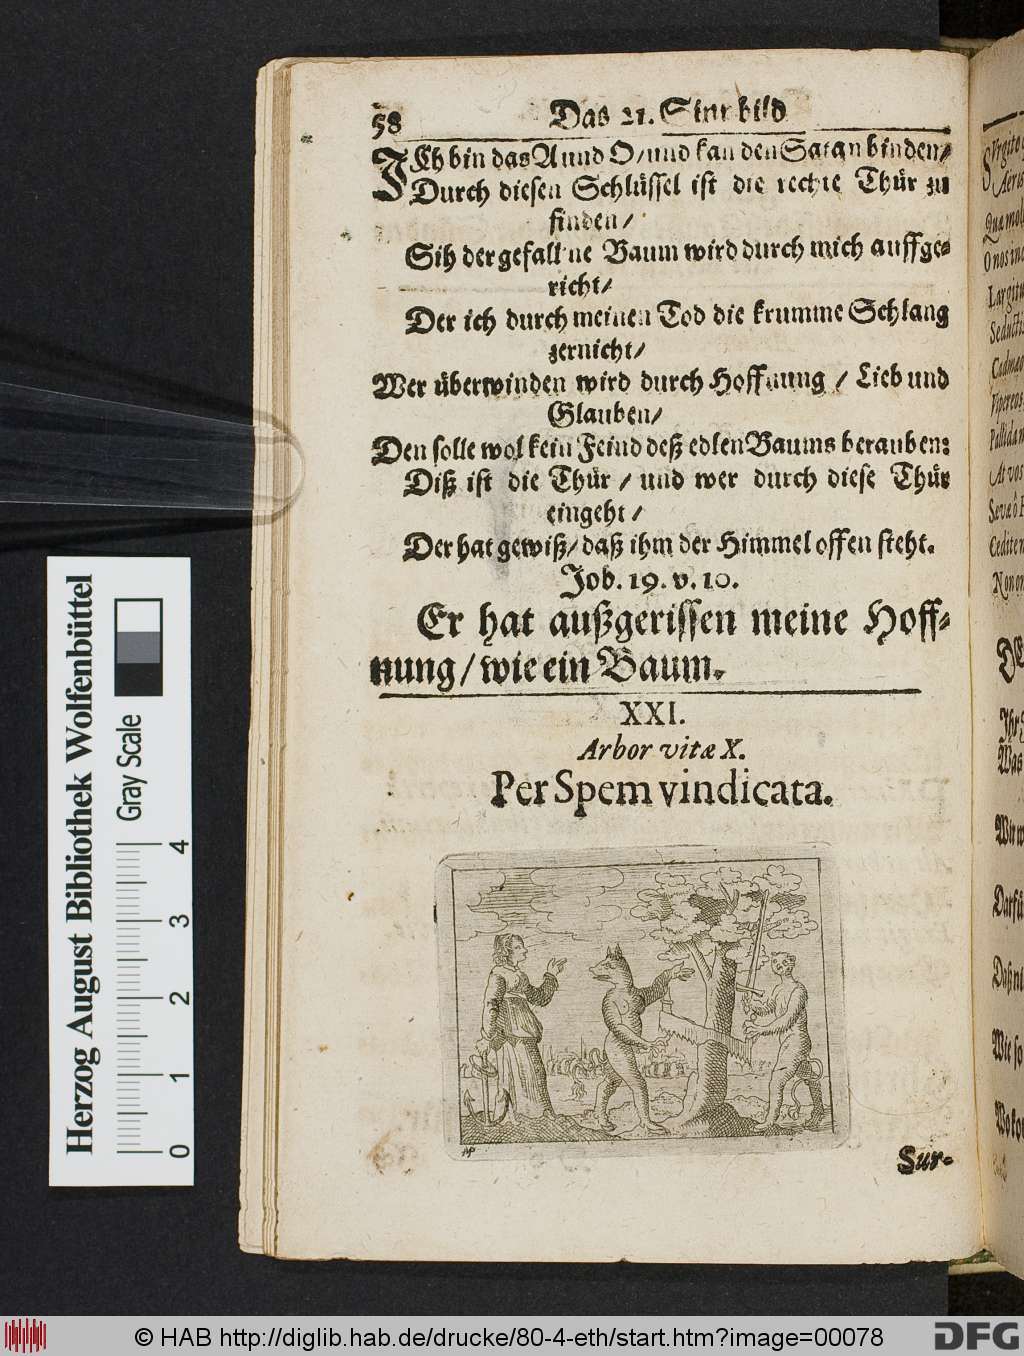 58 Das 21. Sinnbild
ICh bin das A und O/ und kan den Satan binden/
Durch diesen Schlüssel ist die rechte Thür zu
finden/
Sih der gefallne Baum wird durch mich auffge-
richt/
Der ich durch meinen Tod die krumme Schlang
zernicht/
Wer überwinden wird durch Hoffnung / Lieb und
Glauben/
Den solle wol kein Feind deß edlen Baums berauben:
Diß ist die Thür / und wer durch diese Thür
eingeht /
Der hat gewiß/ daß ihm der Himmel offen steht.
Job. 19. v. 10.
Er hat außgerissen meine Hoff-
nung/ wie ein Baum.
XXI.
Arbor vitæ X.
Per Spem vindicata.
Sur-
Quæ mol
O nos ine
Largitu
Seducti
Cadmæo
Vipereos
Pallidam
At vos
Sævæ ô
Cedite
Non
Ihr
Was
Wir w
Darfü
Daß
Wie so
Wo ko
Herzog August Bibliothek Wolfenbüttel
Gray Scale
0 1 2 3 4
© HAB http://diglib.hab.de/drucke/80-4-eth/start.htm?image=00078
DFG